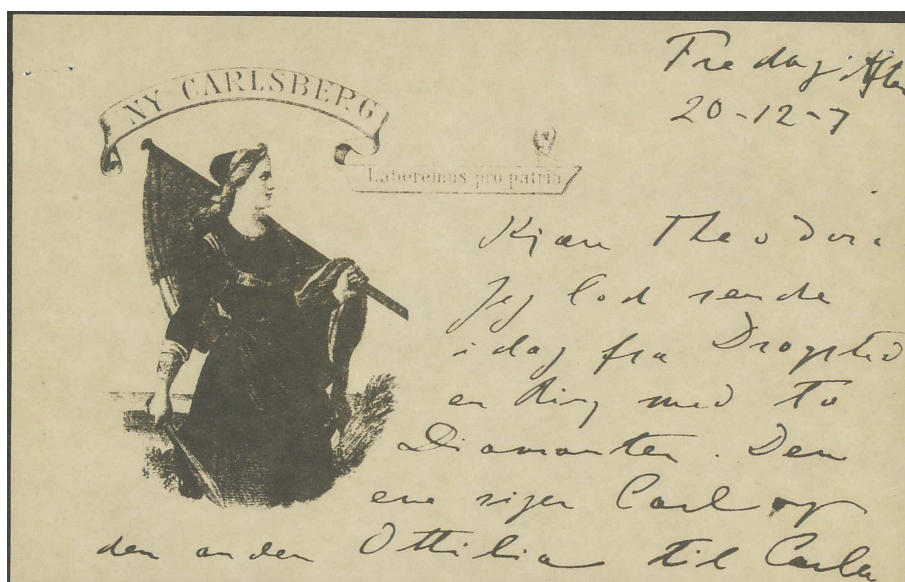 NY CARLSBERG
Laboremus pro patria
Fredag Aften
20-12-7
Kjære Theodora
Jeg lod sende
idag fra Dragsted
en Ring med to
Diamanter. Den
ene siger Carl og
den anden Ottilia til Carla